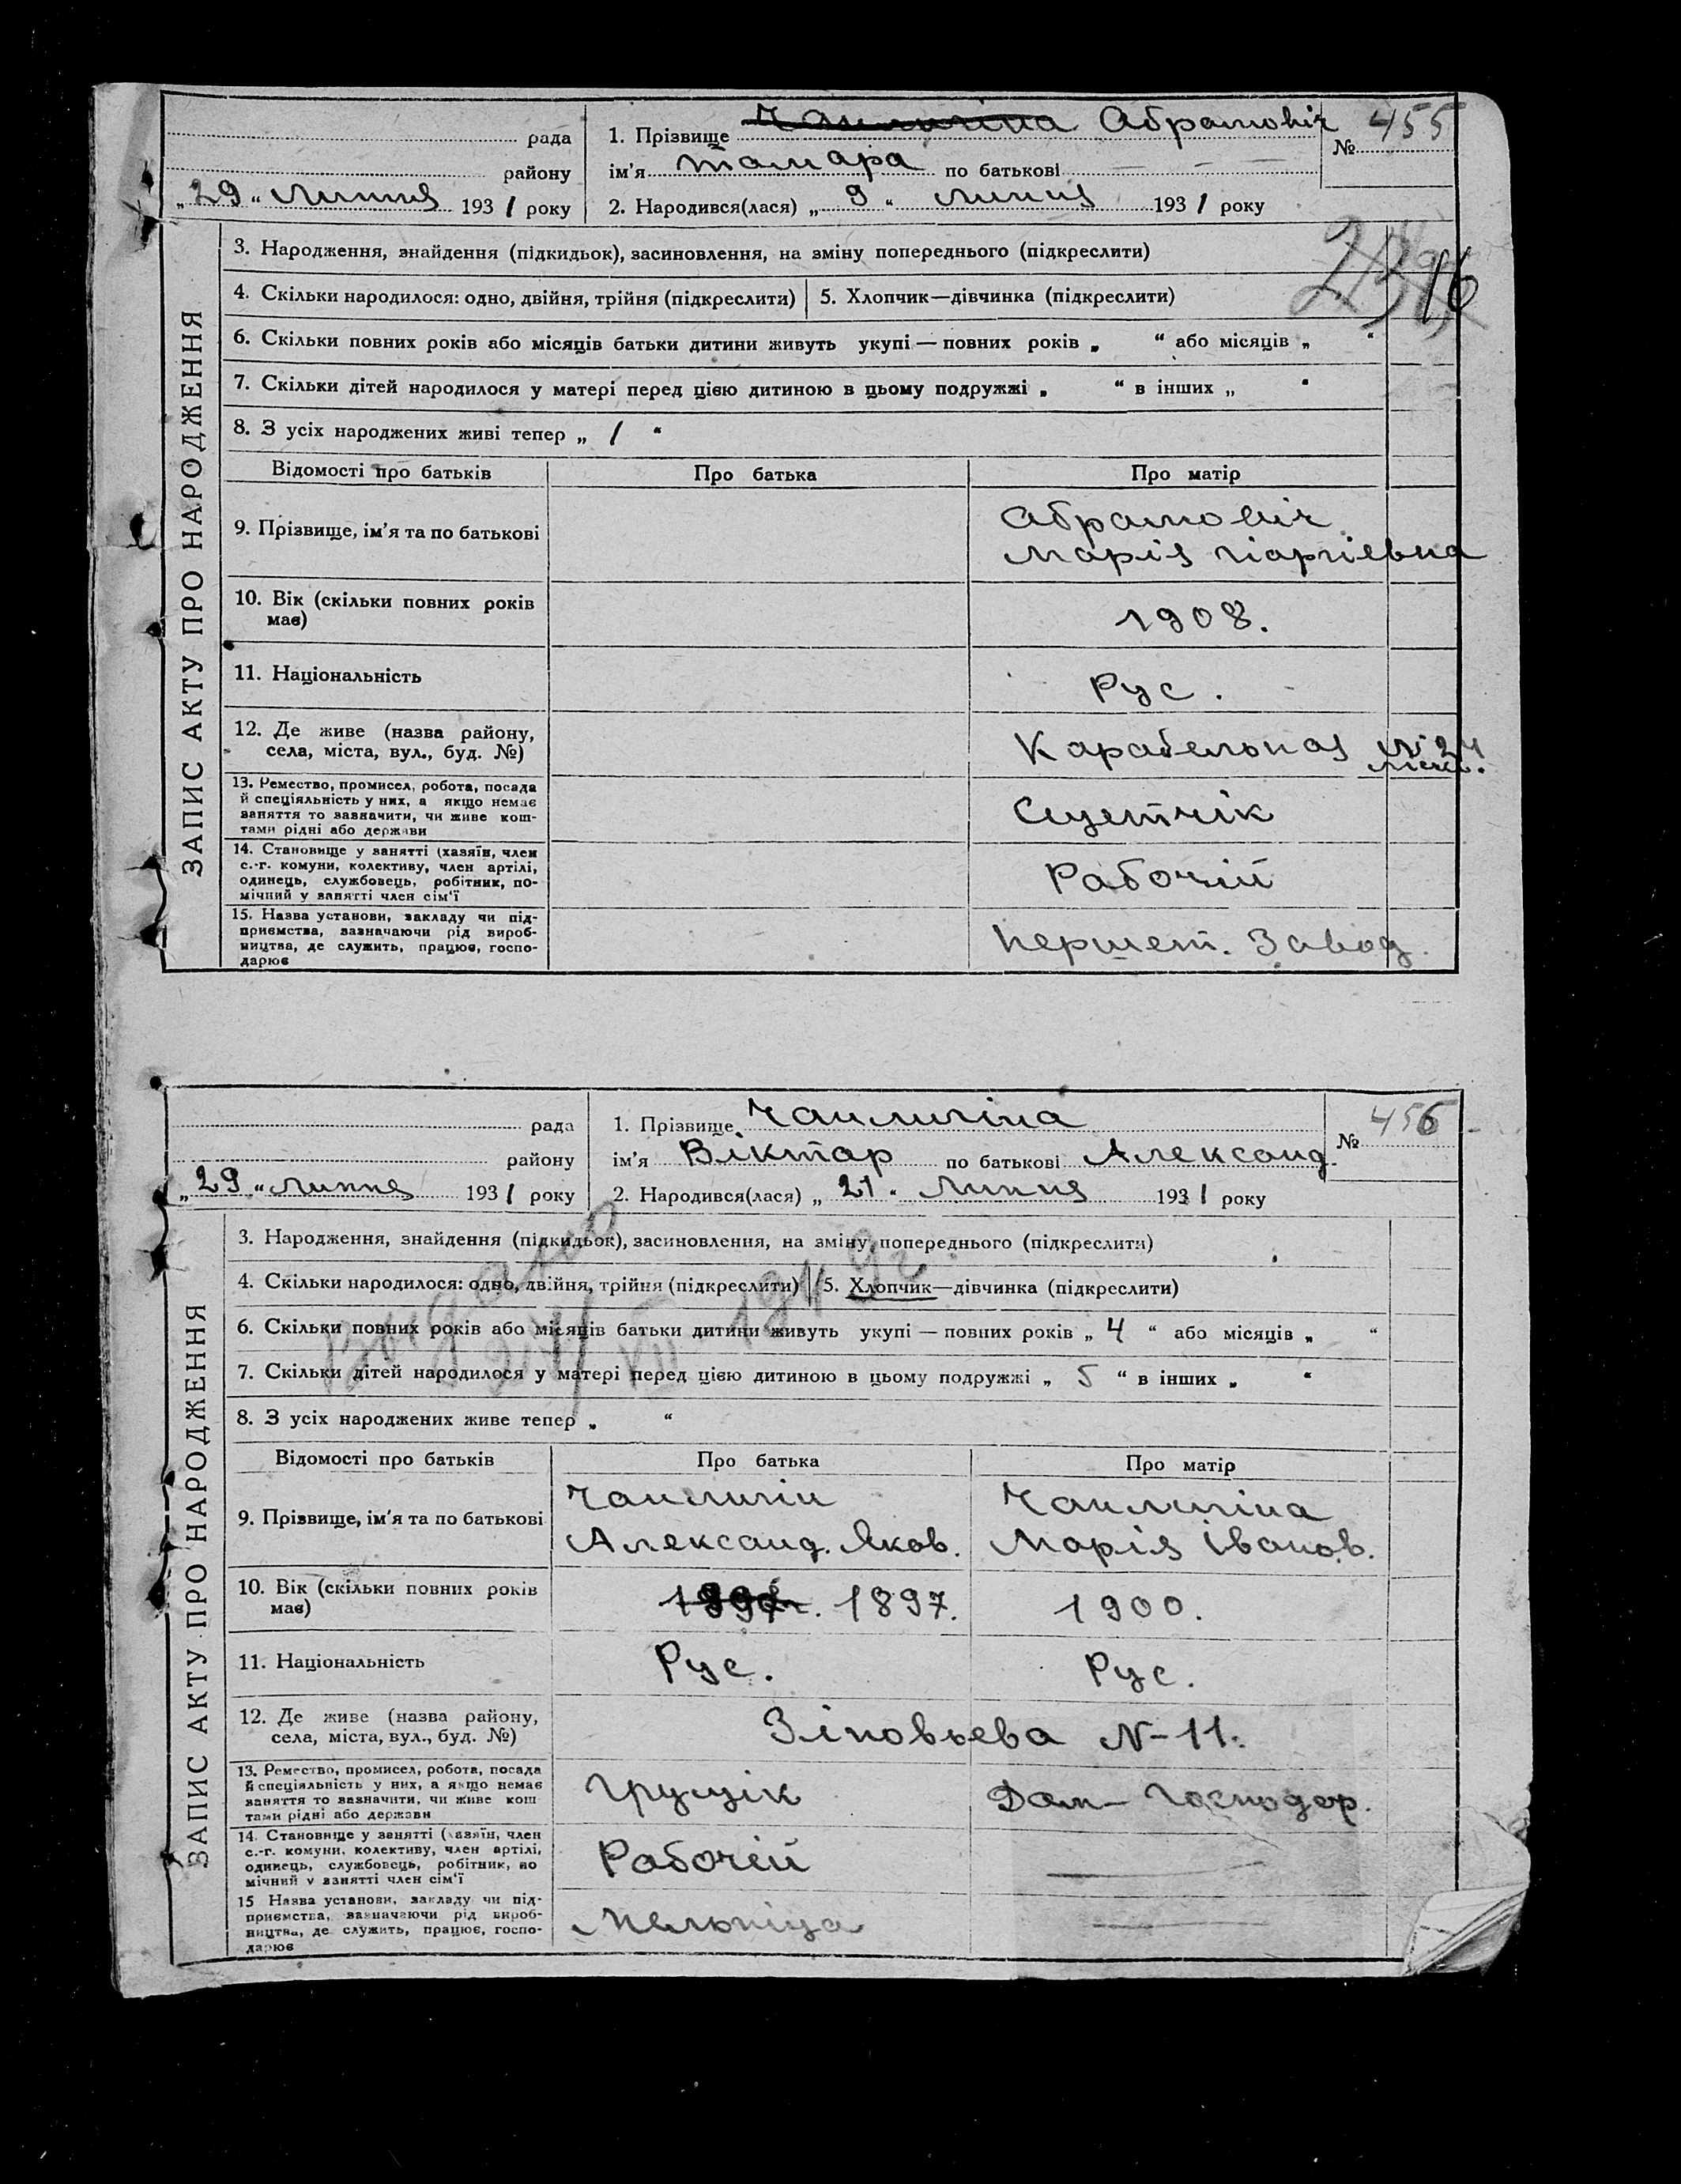 рада
району
„29“ Липня 1931 року
1. Прізвище Абрамовіч
№ 455
ім'я Тамара по батькові — — —
2. Народився(лася) „9“ липня 1931 року
ЗАПИС АКТУ ПРО НАРОДЖЕННЯ
3. Народження, знайдення (підкидьок), засиновлення, на зміну попереднього (підкреслити)
16
4. Скільки народилося: одно, двійня, трійня (підкреслити) 5. Хлопчик—дівчинка (підкреслити)
6. Скільки повних років або місяців батьки дитини живуть укупі — повних років „ “ або місяців „ “
7. Скільки дітей народилося у матері перед цією дитиною в цьому подружжі „ “ в інших „ “
8. З усіх народжених живі тепер „ 1 “
Відомості про батьків Про батька Про матір
9. Прізвище, ім'я та по батькові
Абрамовіч
Марія Гіоргіевна
10. Вік (скільки повних років
має)
1908.
11. Національність
Рус.
12. Де живе (назва району,
села, міста, вул., буд. №)
Карабельная № 24
13. Ремество, промисел, робота, посада
й спеціяльність у них, а якщо немає
заняття то зазначити, чи живе кош-
тами рідні або держави
Сщетчік
14. Становище у занятті (хазяїн, член
с.-г. комуни, колективу, член артілі,
одинець, службовець, робітник, по-
мічний у занятті член сім'ї
Рабочій
15. Назва установи, закладу чи під-
приємства, зазначаючи рід вироб-
ництва, де служить, працює, госпо-
дарює
Завод.
рада
району
„29“ липня 1931 року
1. Прізвище Чапличіна
№ 456
ім'я Віктар по батькові Александ.
2. Народився(лася) „21“ Липня 1931 року
ЗАПИС АКТУ ПРО НАРОДЖЕННЯ
3. Народження, знайдення (підкидьок), засиновлення, на зміну попереднього (підкреслити)
4. Скільки народилося: одно, двійня, трійня (підкреслити) 5. Хлопчик—дівчинка (підкреслити)
6. Скільки повних років або місяців батьки дитини живуть укупі — повних років „ 4 “ або місяців „ “
7. Скільки дітей народилося у матері перед цією дитиною в цьому подружжі „ 5 “ в інших „ “
8. З усіх народжених живе тепер „ “
Відомості про батьків Про батька Про матір
9. Прізвище, ім'я та по батькові
Александ. Яков.
Марія Іванов.
10. Вік (скільки повних років
має)
1897. 1900.
11. Національність
Рус. Рус.
12. Де живе (назва району,
села, міста, вул., буд. №)
Зіновьева N-11.
13. Ремество, промисел, робота, посада
й спеціяльність у них, а якщо немає
заняття то зазначити, чи живе кош-
тами рідні або держави
Грущік Дом-Господар.
14. Становище у занятті (хазяїн, член
с.-г. комуни, колективу, член артілі,
одинець, службовець, робітник, по
мічний у занятті член сім'ї
Рабочій —
15 Назва установи, закладу чи під-
приємства, зазначаючи рід вироб-
ництва, де служить, працює, госпо-
дарює
Мельніца —